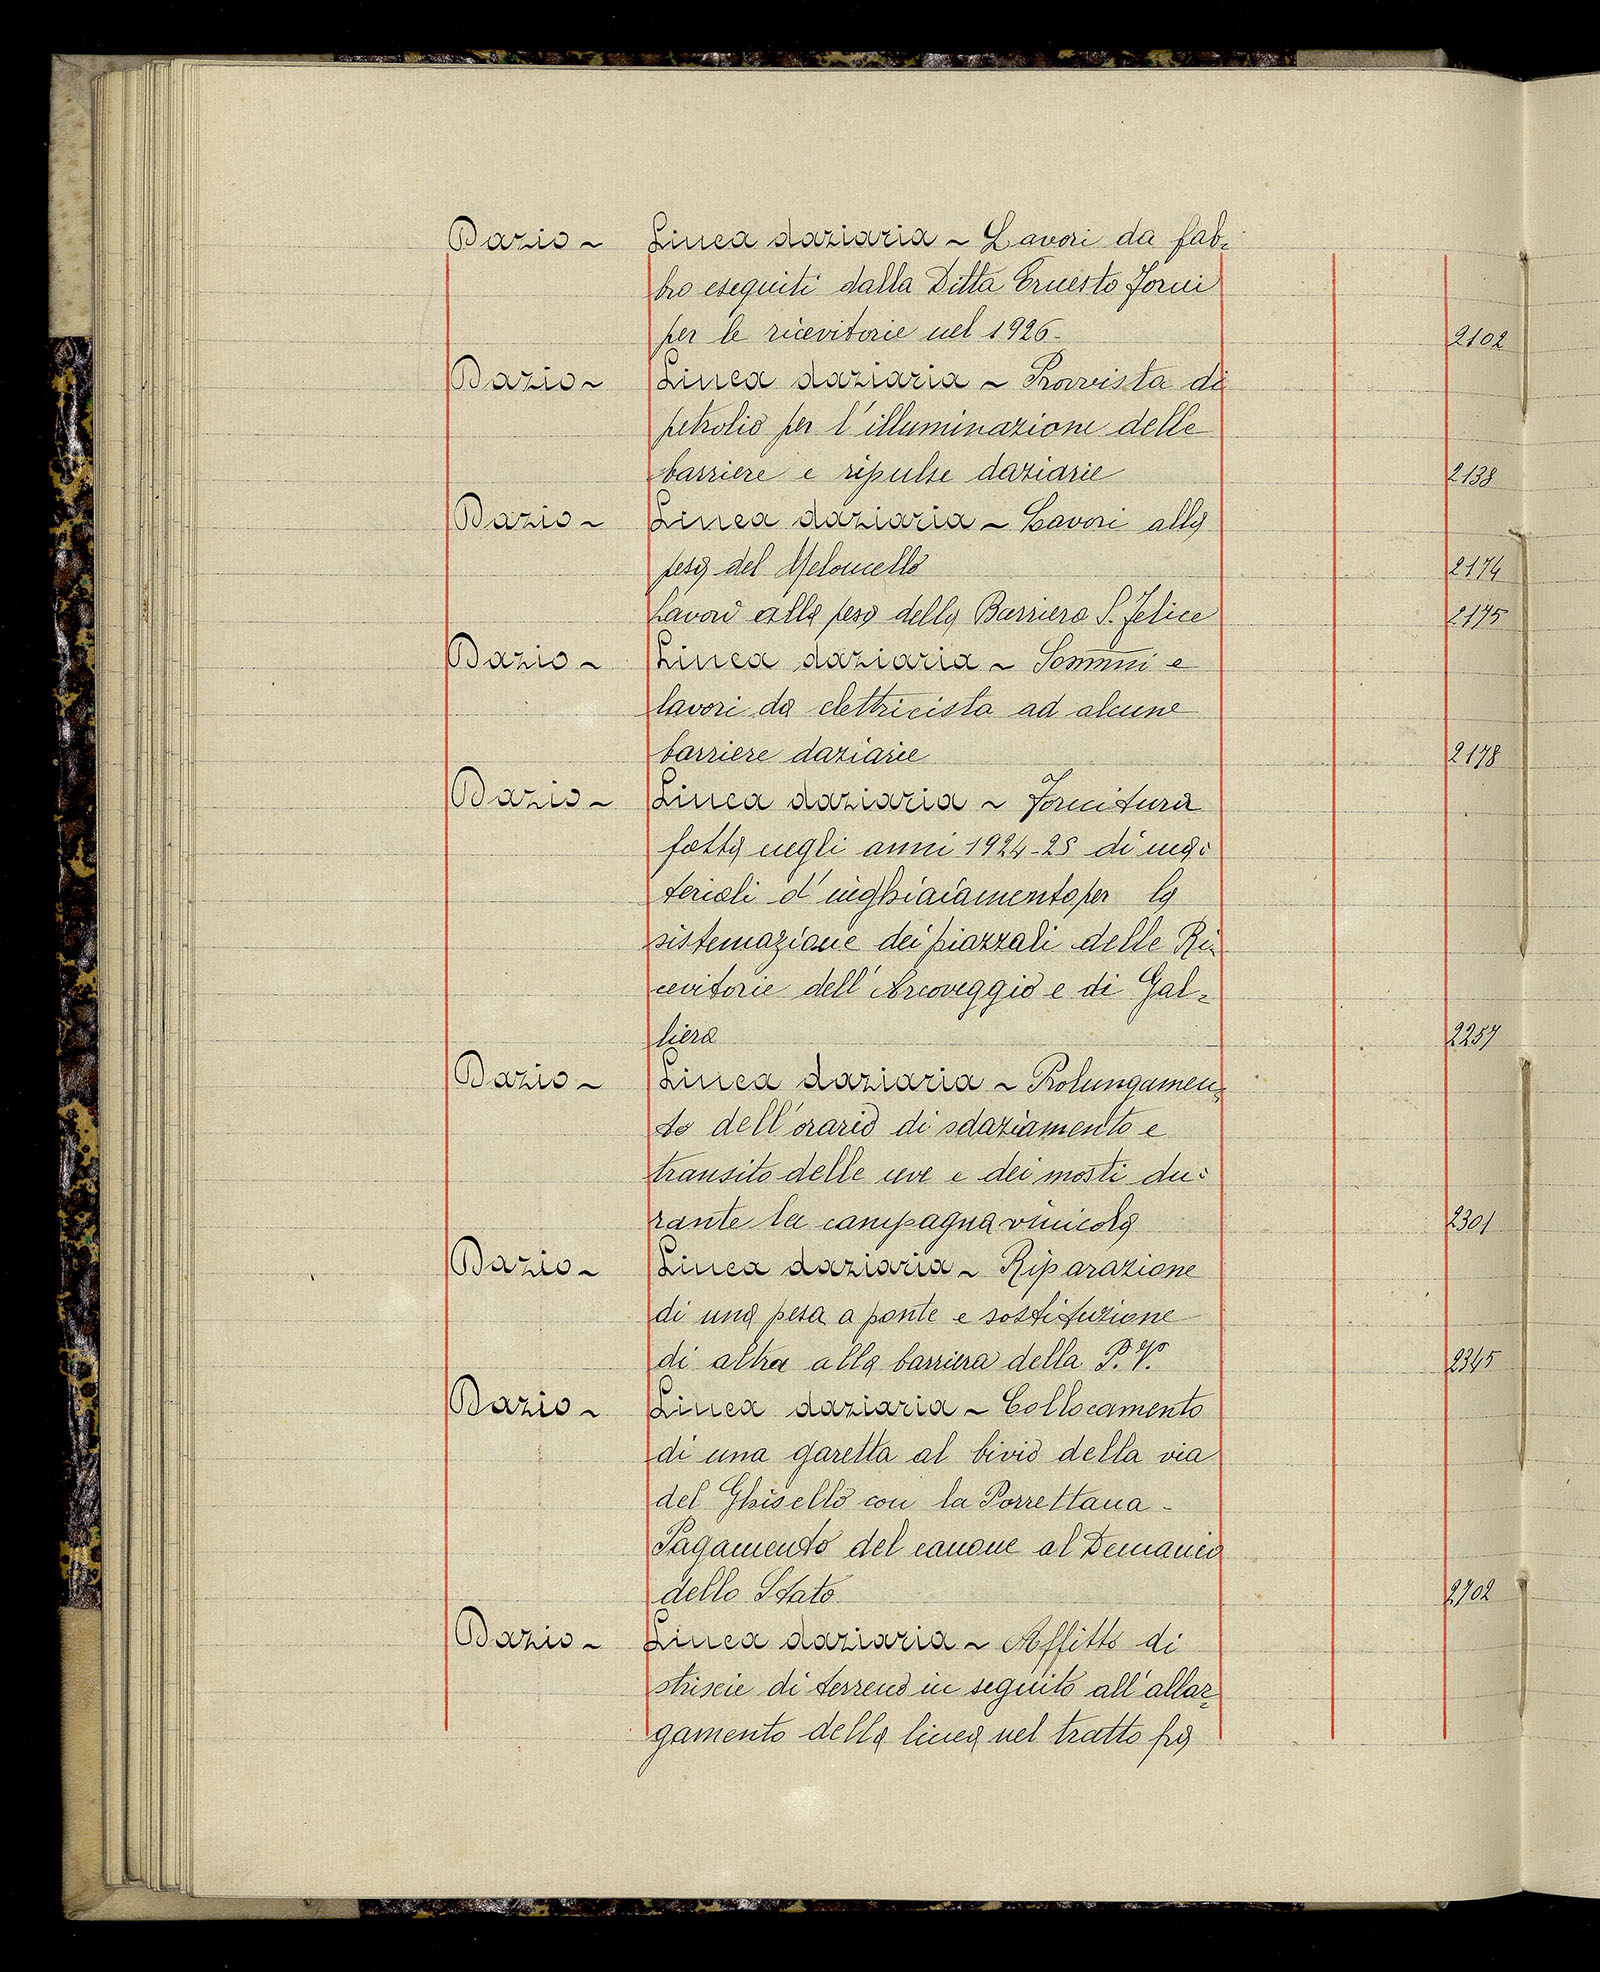 Dazio ~ Linea daziaria ~ Lavori da fab=
bro eseguiti dalla Ditta Ernesto Forni
per le ricevitorie nel 1926- 2102
Dazio ~ Linea daziaria ~ Provvista di
petrolio per l'illuminazione delle
barriere e ripulse daziarie 2138
Dazio ~ Linea daziaria ~ Lavori alla
pesa del Meloncello 2174
Lavori alla pesa della Barriera S. Felice 2175
Dazio ~ Linea daziaria ~ e
lavori da elettricista ad alcune
barriere daziarie 2178
Dazio ~ Linea daziaria ~ Fornitura
fatta negli anni 1924-25 di ma=
teriali d'inghiaiamento per la
sistemazione dei piazzali delle Ri=
cevitorie dell'Arcoveggio e di Gal=
liera 2257
Dazio ~ Linea daziaria ~ Prolungamen=
to dell'orario di sdaziamento e
transito delle uve e dei mosti du=
rante la campagna vinicola 2301
Dazio ~ Linea daziaria ~ Riparazione
di una pesa a ponte e sostituzione
di altra alla barriera della P. V. 2345
Dazio ~ Linea daziaria ~ Collocamento
di una garetta al bivio della via
del Ghisello con la Porrettana -
Pagamento del canone al Demanio
dello Stato 2702
Dazio ~ Linea daziaria ~ Affitto di
striscie di terreno in seguito all'allar=
gamento della linea nel tratto fra